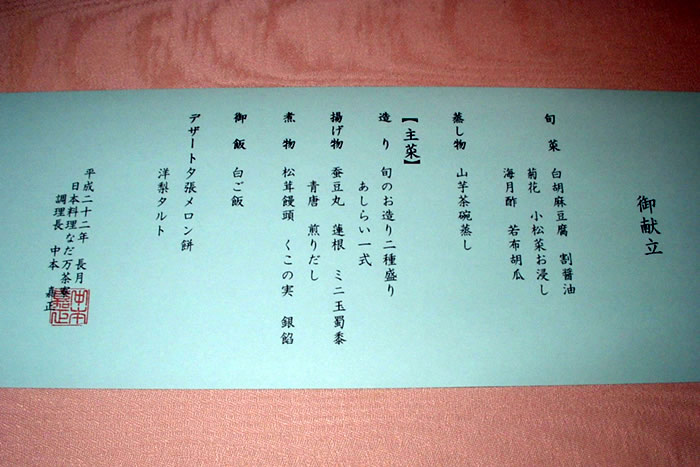 御献立
旬菜 白胡麻豆腐 割醤油
菊花 小松菜お浸し
海月酢 若布胡瓜
蒸し物 山芋茶碗蒸し
【主菜】
造り 旬のお造り二種盛り
あしらい一式
揚げ物 蚕豆丸 蓮根 ミニ玉蜀黍
青唐 煎りだし
煮物 松茸饅頭 くこの実 銀餡
御飯 白ご飯
デザート 夕張メロン餅
洋梨タルト
平成二十二年 長月
日本料理なだ万茶寮
調理長 中本 嘉正
中本嘉正